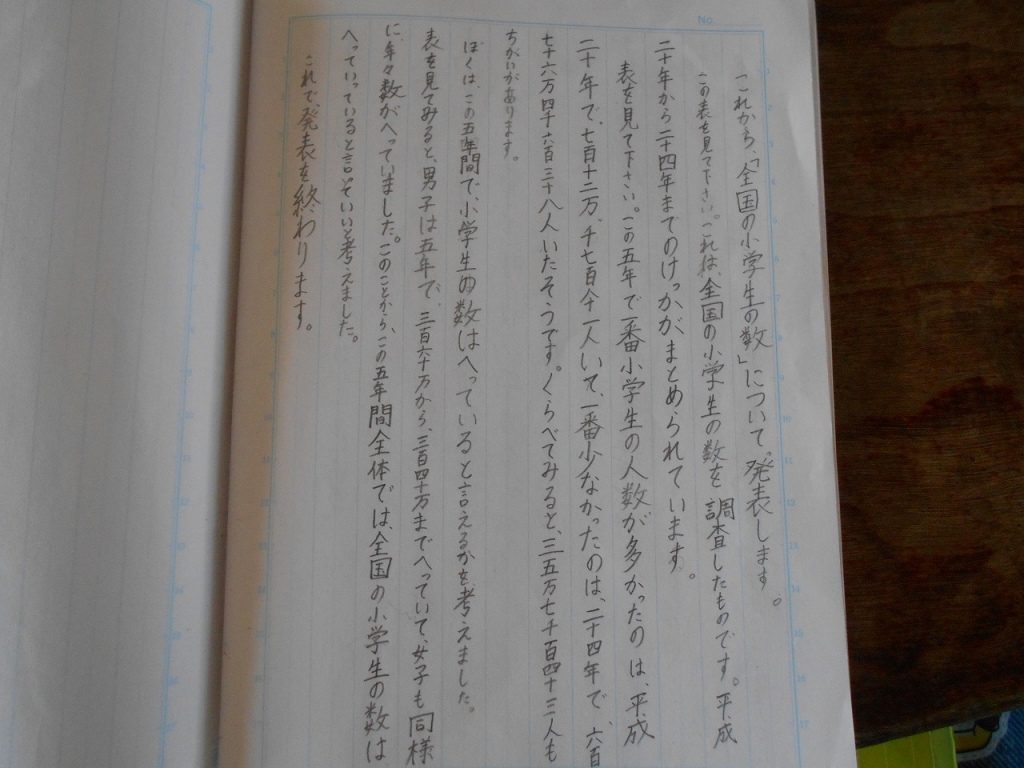 No.
これから、「全国の小学生の数」について、発表します。
この表を見て下さい。これは、全国の小学生の数を調査したものです。平成
二十年から二十四年までのけっかがまとめられています。
表を見て下さい。この五年で一番小学生の人数が多かったのは、平成
二十年で、七百十二万、千七百八十一人いて、一番少なかったのは、二十四年で、六百
七十六万四千六百三十八人いたそうです。くらべてみると、三五万七千百四十三人も
ちがいがあります。
ぼくは、この五年間で、小学生の数はへっていると言えるかを考えました。
表を見てみると、男子は五年で、三百六十万から、三百四十万までへっていて、女子も同様
に、年々数がへっていました。このことから、この五年間全体では、全国の小学生の数は
へっていっていると言っていいと考えました。
これで、発表を終わります。